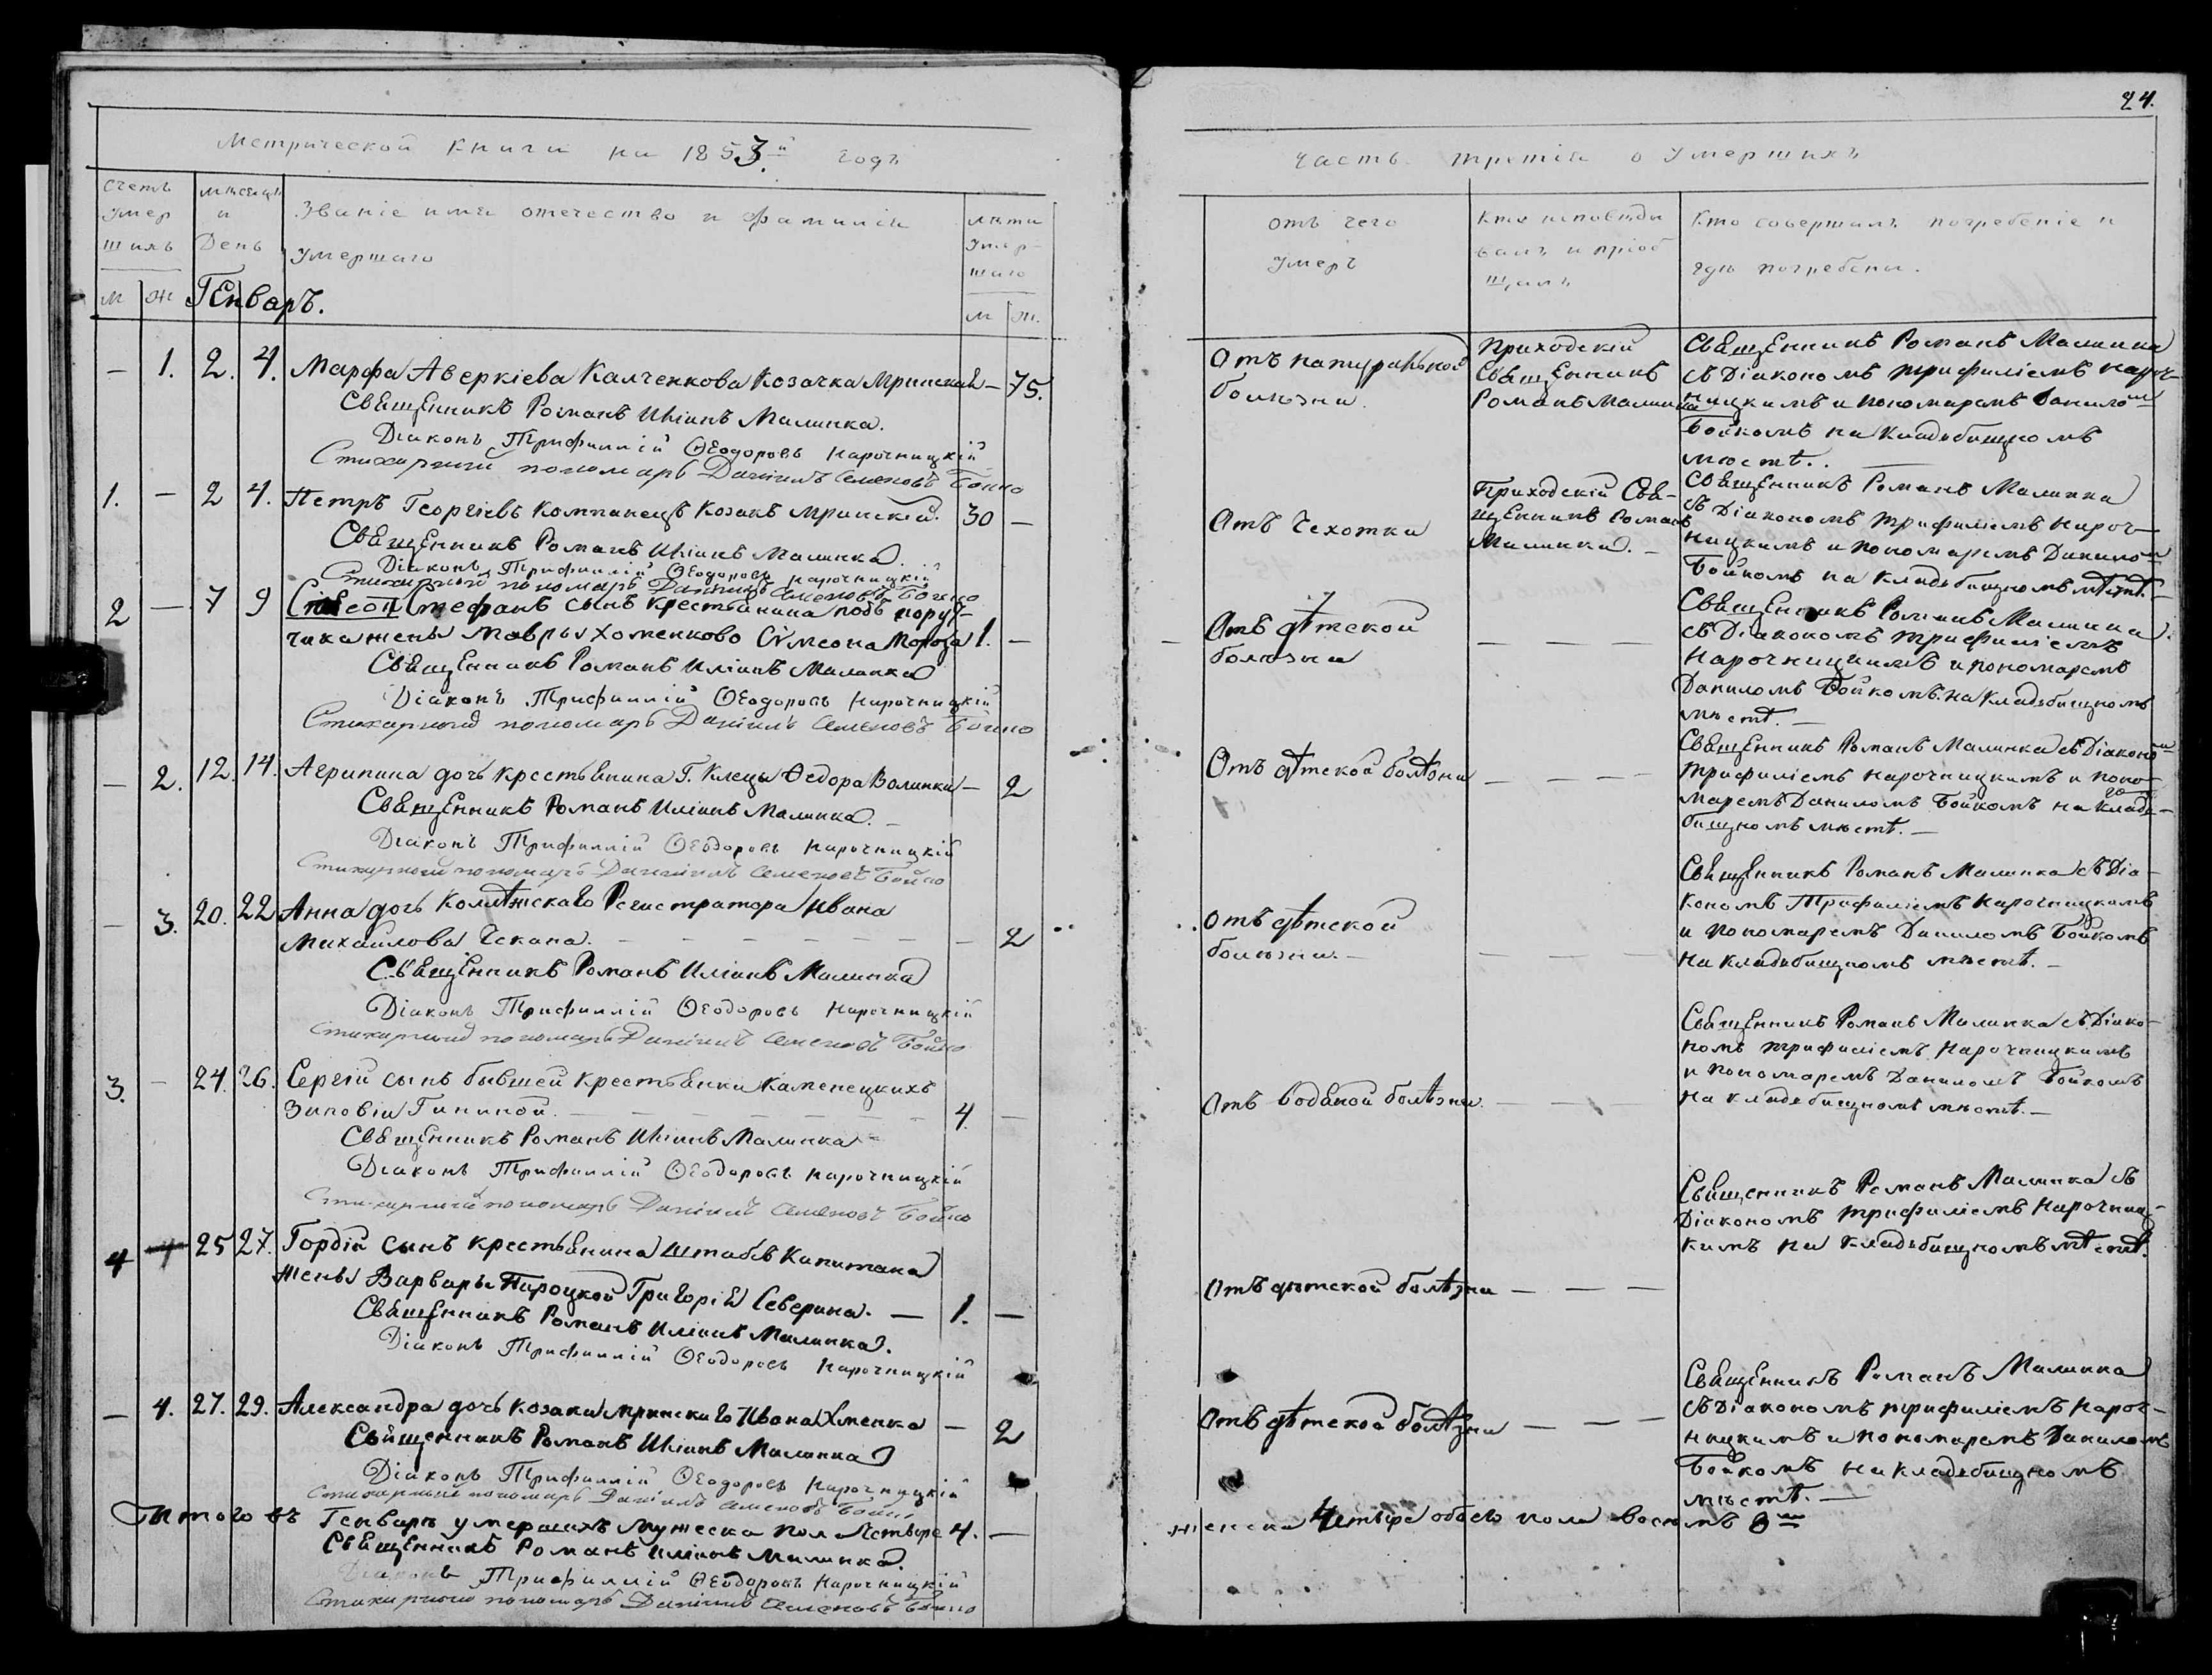 Метрической книги на 1853.й годъ
Счетъ умер шихъ
мѣсяцъ и День
Званіе имя отечество и фамилія умершаго
лѣта умер- шаго
м ж Генваръ. м ж.
— 1. 2. 4. Марфа Аверкіева Калченкова Козачка Мринская — 75.
Священникъ Романъ Иліинъ Малинка.
Діаконъ Трифиллій Ѳеодоровъ Нарочницкій
Стихарный пономарь Даніилъ Семеновъ Бойко
1. — 2 4. Петръ Георгіевъ Компанецъ Козакъ Мринскій. 30 —
Священникъ Романъ Иліинъ Малинка.
Діаконъ Трифиллій Ѳеодоровъ Нарочницкій
Стихарный пономарь Даніилъ Семеновъ Бойко
2 — 7 9 Стефанъ сынъ крестьянина подъ пору-
чика жены Мавры Хоменково Сѵмеона Мороза 1. —
Священникъ Романъ Иліинъ Малинка
Діаконъ Трифиллій Ѳеодоровъ Нарочницкій
Стихарный пономарь Даніилъ Семеновъ Бойко
— 2. 12. 14. Агрипина дочь крестьянина Г. Клецы Ѳедора Волинки — 2
Священникъ Романъ Иліинъ Малинка. —
Діаконъ Трифиллій Ѳеодоровъ Нарочницкій
Стихарный пономарь Даніилъ Семеновъ Бойко
— 3. 20. 22 Анна дочь Коллѣжскаго Регистратора Ивана
Михайлова Чекана. — — — — — — — 2
Священникъ Романъ Иліинъ Малинка
Діаконъ Трифиллій Ѳеодоровъ Нарочницкій
Стихарный пономарь Даніилъ Семеновъ Бойко
3. — 24. 26. Сергій сынъ бывшей крестьянки Каменецкихъ
Зиновіи Гининой. — — — — — — 4. —
Священникъ Романъ Иліинъ Малинка
Діаконъ Трифиллій Ѳеодоровъ Нарочницкій
Стихарный пономарь Даніилъ Семеновъ Бойко
4 — 25 27. Гордій сынъ крестьянина Штабсъ Капитана
жены Варвары Пироцкой Григорія Северина. — 1. —
Священникъ Романъ Иліинъ Малинка.
Діаконъ Трифиллій Ѳеодоровъ Нарочницкій
— 4. 27. 29. Александра дочь Козака Мринскаго Ивана Хменка — 2
Священникъ Романъ Иліинъ Малинка
Діаконъ Трифиллій Ѳеодоровъ Нарочницкій
Стихарный пономарь Даніилъ Семеновъ Бойко
Итого въ Генварѣ умершихъ мужеска пол Четыре 4. —
Священникъ Романъ Иліинъ Малинка.
Діаконъ Трифиллій Ѳеодоровъ Нарочницкій
Стихарный пономарь Даніилъ Семеновъ Бойко
24.
Часть третія о умершихъ
отъ чего умеръ
Кто исповѣды валъ и пріоб щалъ
Кто совершалъ погребеніе и гдѣ погребены.
Отъ натуральной
болѣзни
Приходскій
Священникъ
Романъ Малинка
Священникъ Романъ Малинка
съ Діакономъ Трифиліемъ Нароч-
ницкимъ и пономаремъ Даниломъ
Бойкомъ на кладьбищномъ
мѣстѣ..
Отъ Чехотки
Приходскій Свя-
щенникъ Романъ
Малинка. —
Священникъ Романъ Малинка
съ Діакономъ Трифиліемъ Нароч-
ницкимъ и пономаремъ Даниломъ
Бойкомъ на кладьбищномъ мѣстѣ. —
Отъ дѣтской
болѣзни
— — —
Священникъ Романъ Малинка
съ Діакономъ Трифиліемъ
Нарочницкимъ и пономаремъ
Даниломъ Бойкомъ. на кладьбищномъ
мѣстѣ. —
Отъ дѣтской болѣзни — — — —
Священникъ Романъ Малинка съ Діакономъ
Трифиліемъ Нарочницкимъ и поно-
маремъ Даниломъ Бойкомъ на кладь-
бищномъ мѣстѣ. —
Отъ дѣтской
болѣзни. —
— — —
Священникъ Романъ Малинка съ Діа-
кономъ Трифиліемъ Нарочницкимъ
и пономаремъ Даниломъ Бойкомъ
на кладьбищномъ мѣстѣ. —
Отъ водяной болѣзни. — — —
Священникъ Романъ Малинка съ Діако-
номъ Трифиліемъ Нарочницкимъ
и пономаремъ Даниломъ Бойкомъ
на кладьбищномъ мѣстѣ. —
Отъ дѣтской болѣзни — — —
Священникъ Романъ Малинка съ
Діакономъ Трифиліемъ Нарочниц-
кимъ на кладьбищномъ мѣстѣ.
Отъ дѣтской болѣзни — — —
Священникъ Романъ Малинка
съ Діакономъ Трифиліемъ Нароч-
ницкимъ и пономаремъ Даниломъ
Бойкомъ на кладьбищномъ
мѣстѣ. —
женска Четыре обоего пола восемь 8